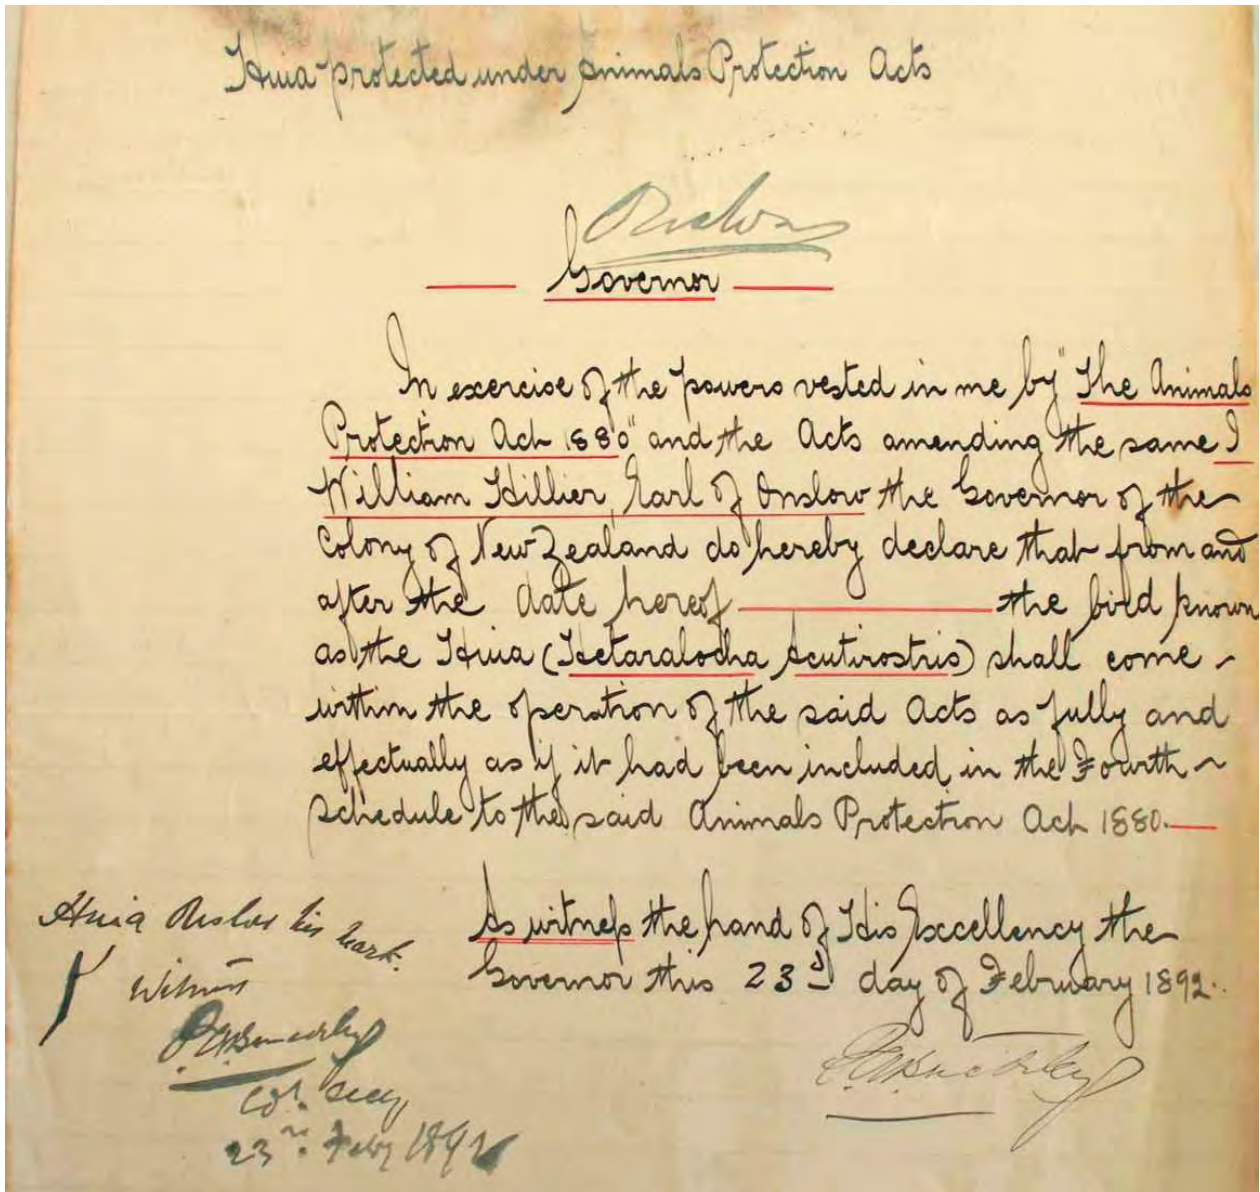 Huia protected under Animals Protection Acts
Onslow
Governor
In exercise of the powers vested in me by "The Animals
Protection Act 1880" and the Acts amending the same I
William Hillier, Earl of Onslow the Governor of the
Colony of New Zealand do hereby declare that from and
after the date hereof the bird known
as the Huia (Hetaralocha Acutirostris) shall come
within the operation of the said Acts as fully and
effectually as if it had been included in the Fourth
schedule to the said Animals Protection Act 1880.
As witness the hand of His Excellency the
Governor this 23d day of February 1892.
P.A. Buckley
Huia Onslow his mark.
Witness
P.A. Buckley
Col. Secy
23rd Feby 1892